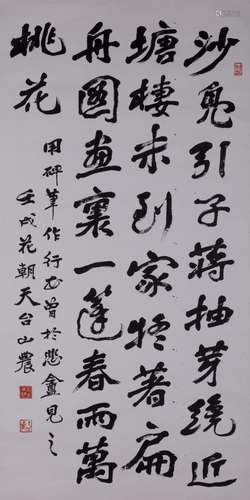 沙鳧引子蔣抽芽纔近
塘棲未到家著扁
舟圖畫裏一篷春雨萬
桃花
用碑筆作行書曾於悲盦見之
壬戌花朝天台山農